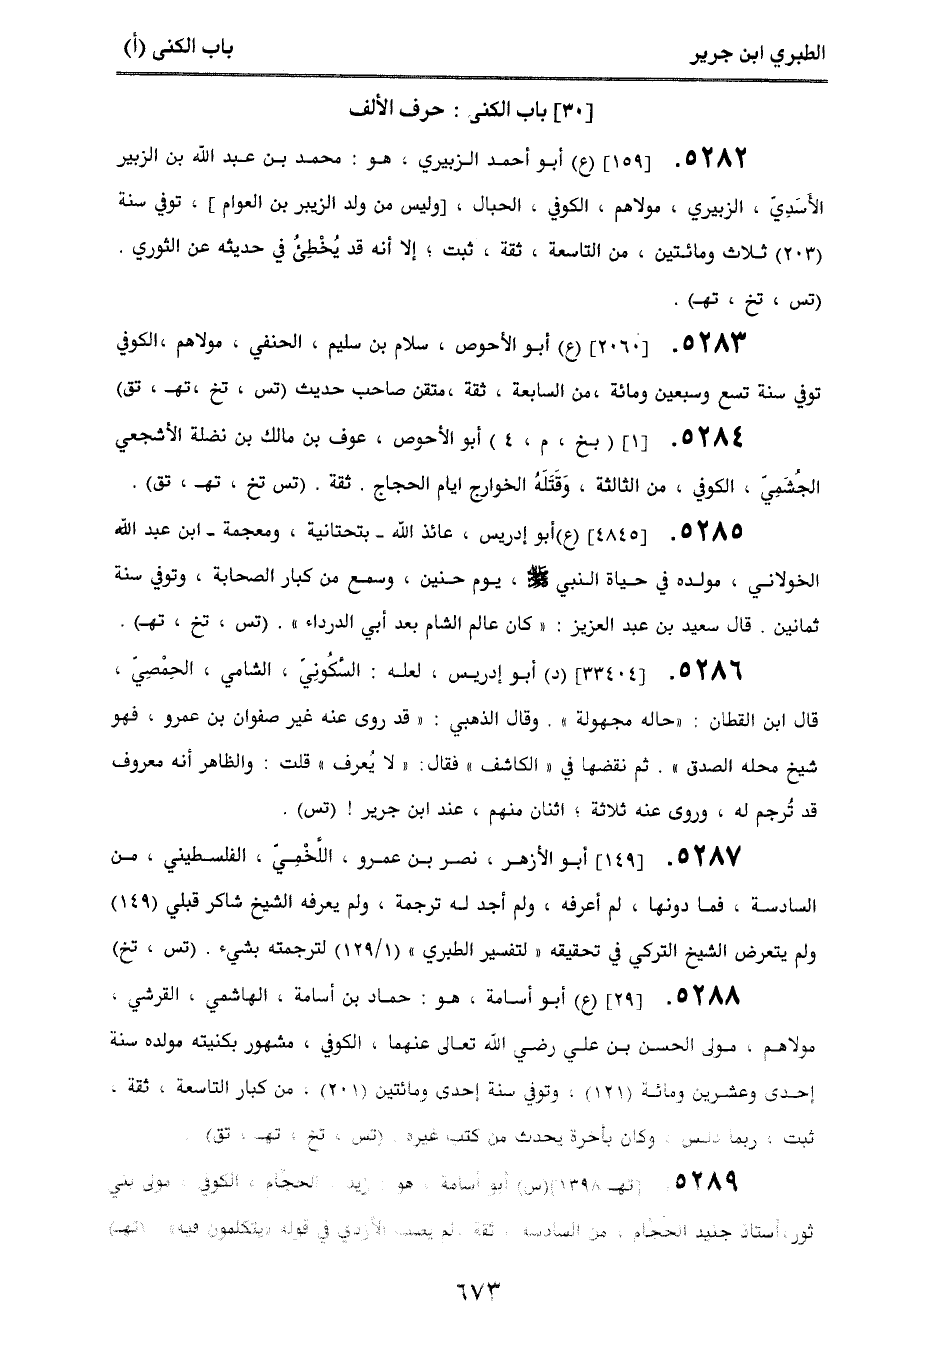 الطبري ابن جرير
باب الكنى (أ)
[٣٠] باب الكنى : حرف الألف
٥٢٨٢. [١٥٩] (ع) أبو أحمد الزبيري ، هو : محمد بن عبد الله بن الزبير
الأَسَدِيّ ، الزبيري ، مولاهم ، الكوفي ، الحبال ، [وليس من ولد الزبير بن العوام ] ، توفي سنة
(٢٠٣) ثلاث ومائتين ، من التاسعة ، ثقة ، ثبت ؛ إلا أنه قد يُخْطِئُ في حديثه عن الثوري .
(تس ، تخ ، تهـ) .
٥٢٨٣. [٢٠٦٠] (ع) أبو الأحوص ، سلام بن سليم ، الحنفي ، مولاهم ،الكوفي
توفي سنة تسع وسبعين ومائة ،من السابعة ، ثقة ،متقن صاحب حديث (تس ، تخ ،تهـ ، تق)
٥٢٨٤. [١] ( بخ ، م ، ٤ ) أبو الأحوص ، عوف بن مالك بن نضلة الأشجعي
الجُشَمِيّ ، الكوفي ، من الثالثة ، وَقَتَلَهُ الخوارج ايام الحجاج . ثقة . (تس تخ ، تهـ ، تق) .
٥٢٨٥. [٤٨٤٥] (ع)أبو إدريس ، عائذ الله ـ بتحتانية ، ومعجمة ـ ابن عبد الله
الخولاني ، مولده في حياة النبي ﷺ ، يوم حنين ، وسمع من كبار الصحابة ، وتوفي سنة
ثمانين . قال سعيد بن عبد العزيز : « كان عالم الشام بعد أبي الدرداء » . (تس ، تخ ، تهـ) .
٥٢٨٦. [٣٣٤٠٤] (د) أبو إدريس ، لعله : السَّكُونِيّ ، الشامي ، الحِمْصِيّ ،
قال ابن القطان : «حاله مجهولة » . وقال الذهبي : « قد روى عنه غير صفوان بن عمرو ، فهو
شيخ محله الصدق » . ثم نقضها في « الكاشف » فقال: « لا يُعرف » قلت : والظاهر أنه معروف
قد تُرجم له ، وروى عنه ثلاثة ؛ اثنان منهم ، عند ابن جرير ! (تس) .
٥٢٨٧. [١٤٩] أبو الأزهر ، نصر بن عمرو ، اللَّخْمِيّ ، الفلسطيني ، من
السادسة ، فما دونها ، لم أعرفه ، ولم أجد له ترجمة ، ولم يعرفه الشيخ شاكر قبلي (١٤٩)
ولم يتعرض الشيخ التركي في تحقيقه « لتفسير الطبري » (١٢٩/١) لترجمته بشيء . (تس ، تخ)
٥٢٨٨. [٢٩] (ع) أبو أسامة ، هو : حماد بن أسامة ، الهاشمي ، القرشي ،
مولاهم ، مولى الحسن بن علي رضي الله تعالى عنهما ، الكوفي ، مشهور بكنيته مولده سنة
إحدى وعشرين ومائة (١٢١) ، وتوفي سنة إحدى ومائتين (٢٠١) ، من كبار التاسعة ، ثقة ،
ثبت ، ربما دلس ، وكان بأخرة يحدث من كتب غيره . (تس ، تخ ، تهـ ، تق) .
٥٢٨٩. [تهـ ١٣٩٨](س) أبو أسامة ، هو : زيد ، الحجام ، الكوفي ، مولى بني
ثور،أستاذ جنيد الحجام ، من السادسة ، ثقة ،لم يصب الأزدي في قوله «يتكلمون فيه» . (تهـ)
٦٧٣